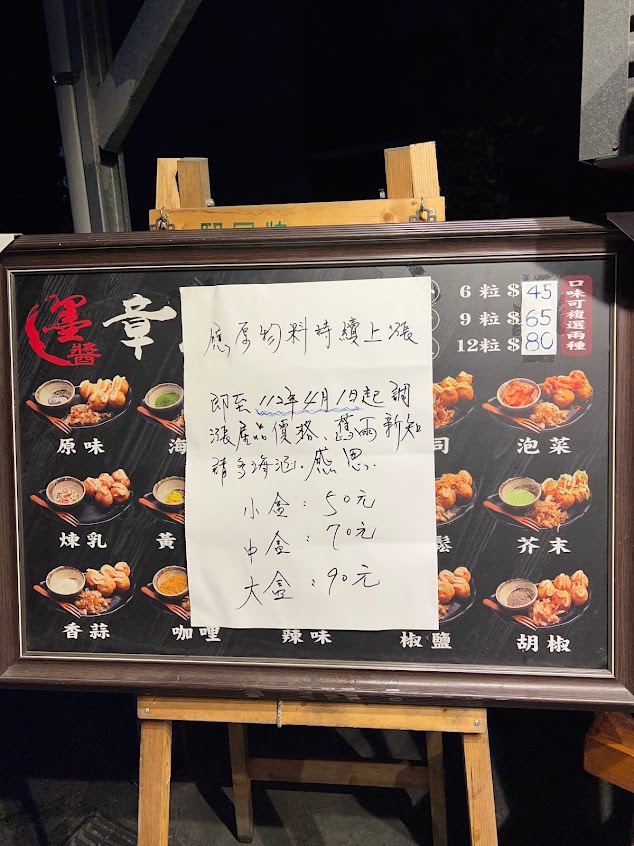 墨
醬
章
6 粒 $45
9 粒 $65
12粒 $80
口味可複選兩種
應原物料持續上漲
即至 112年4月1日起 調
漲產品價格、舊雨新知
請多海涵。感恩.
小盒：50元
中盒：70元
大盒：90元
原味
海
司
泡菜
煉乳
黃
鬆
芥末
香蒜
咖哩
辣味
椒鹽
胡椒